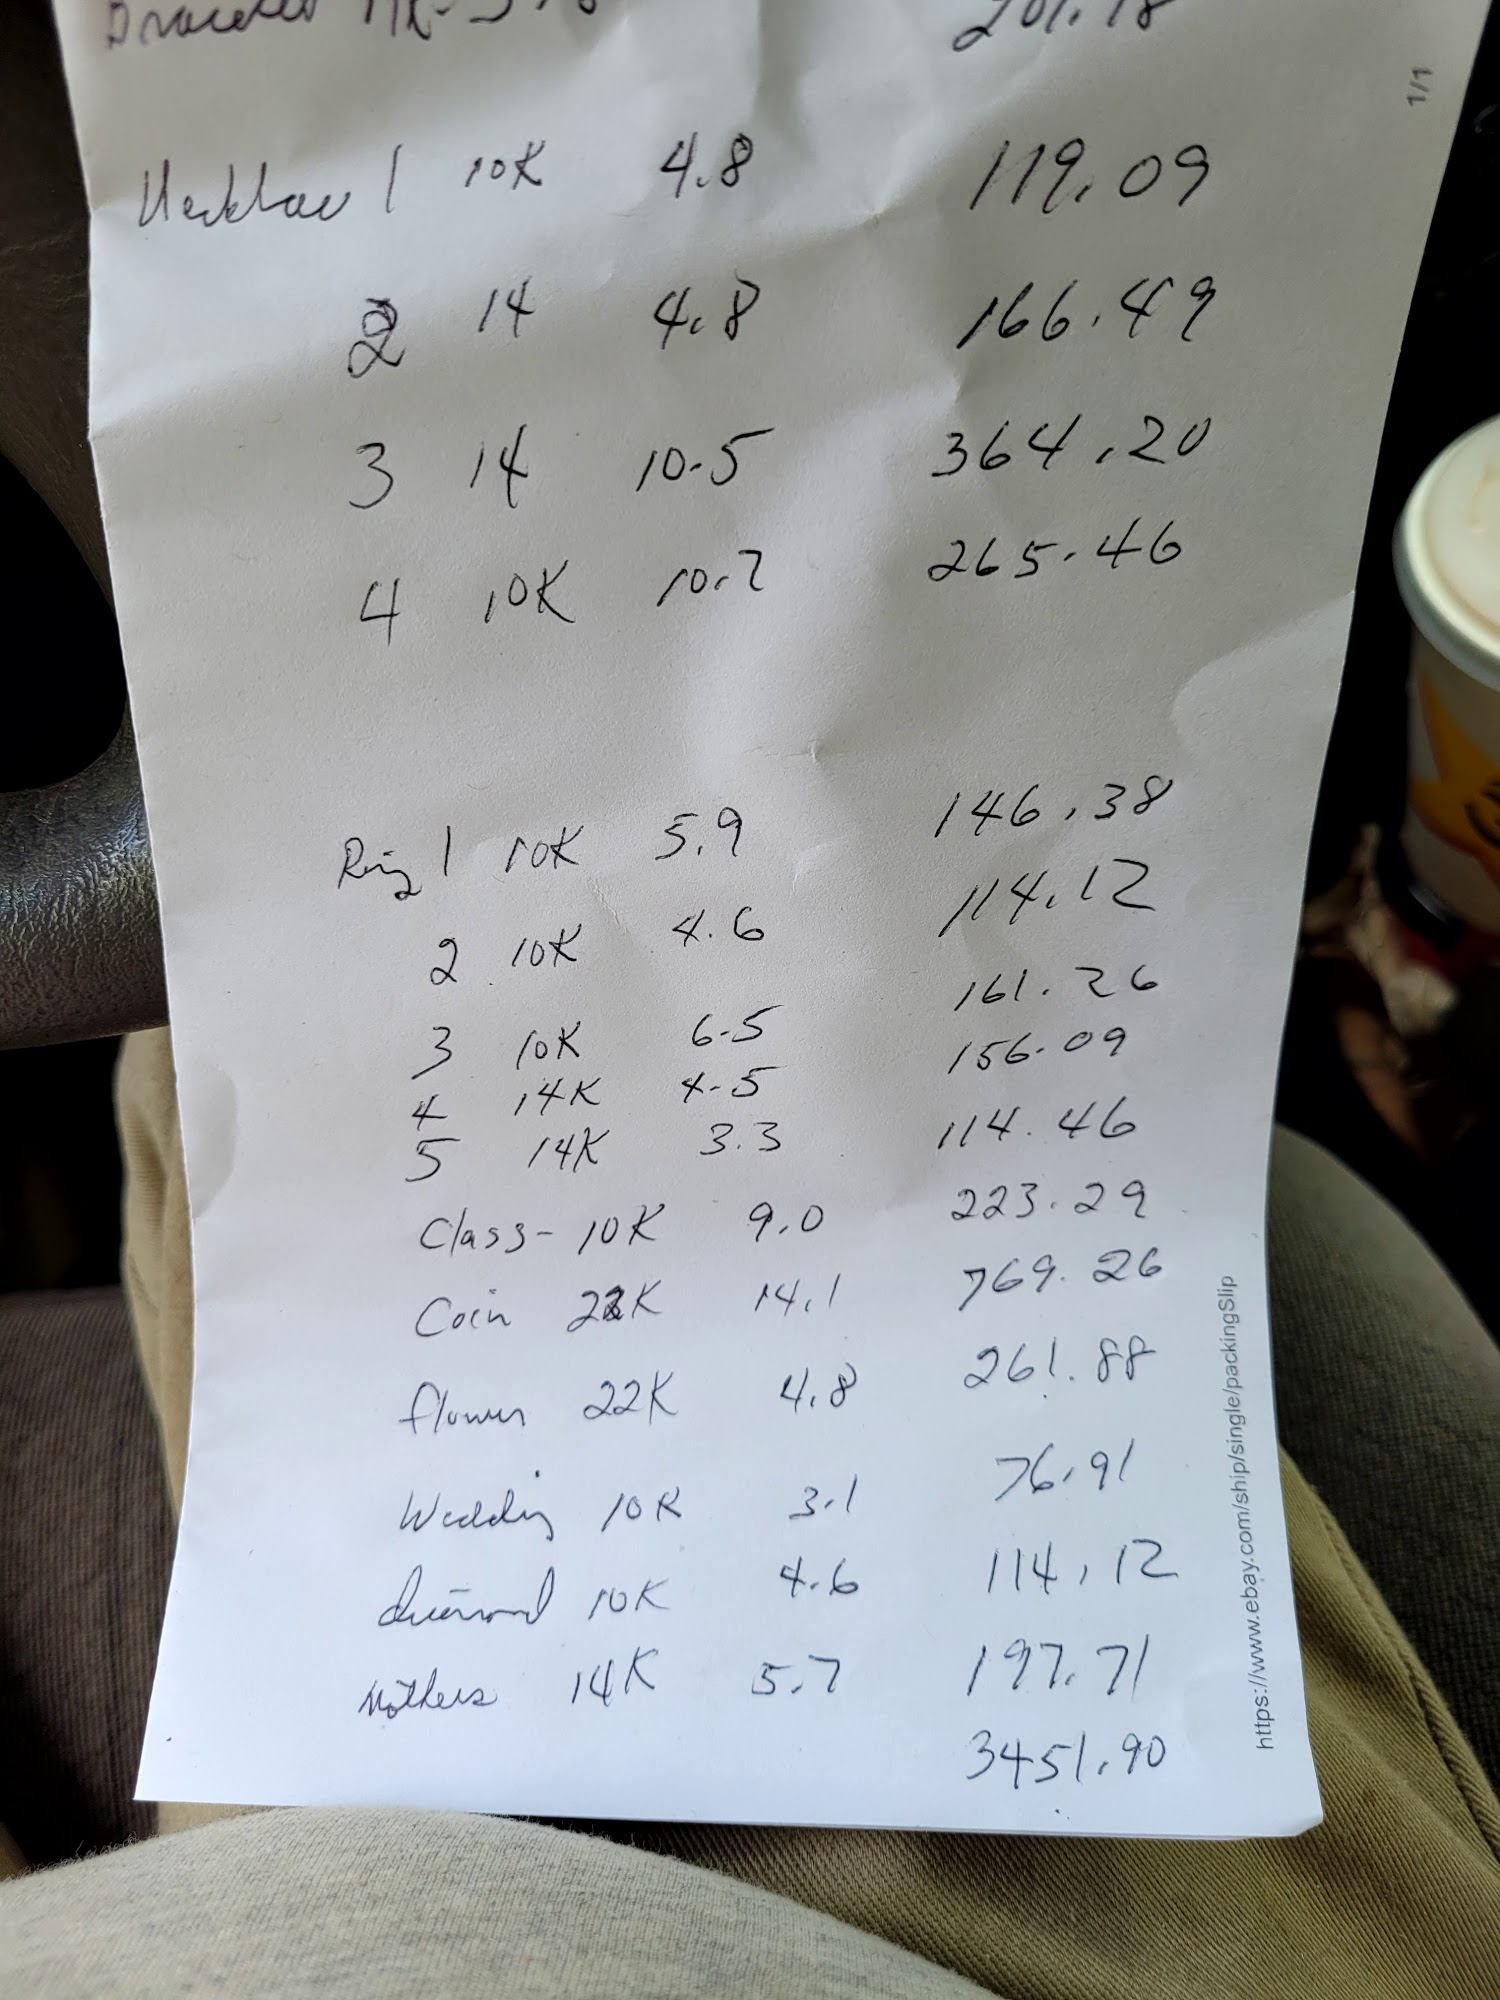 Bracelet 14K- 5.8 201.18
1/1
Necklace 1 10K 4.8 119.09
2 14 4.8 166.49
3 14 10.5 364.20
4 10K 10.7 265.46
Ring 1 10K 5.9 146.38
2 10K 4.6 114.12
3 10K 6.5 161.26
4 14K 4.5 156.09
5 14K 3.3 114.46
Class- 10K 9.0 223.29
Coin 22K 14.1 769.26
flower 22K 4.8 261.88
Wedding 10K 3.1 76.91
diamond 10K 4.6 114.12
Mothers 14K 5.7 197.71
3451.90
https://www.ebay.com/ship/single/packingSlip